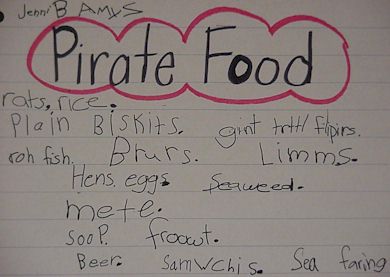 Jenni B Amy S
Pirate Food
rats. rice.
Plain Biskits. gint trtl/ flipirs.
roh fish. Brurs. Limms.
Hens. eggs Seaweed.
mete.
SOOP. froowt.
Beer. Samwchis. Sea faring